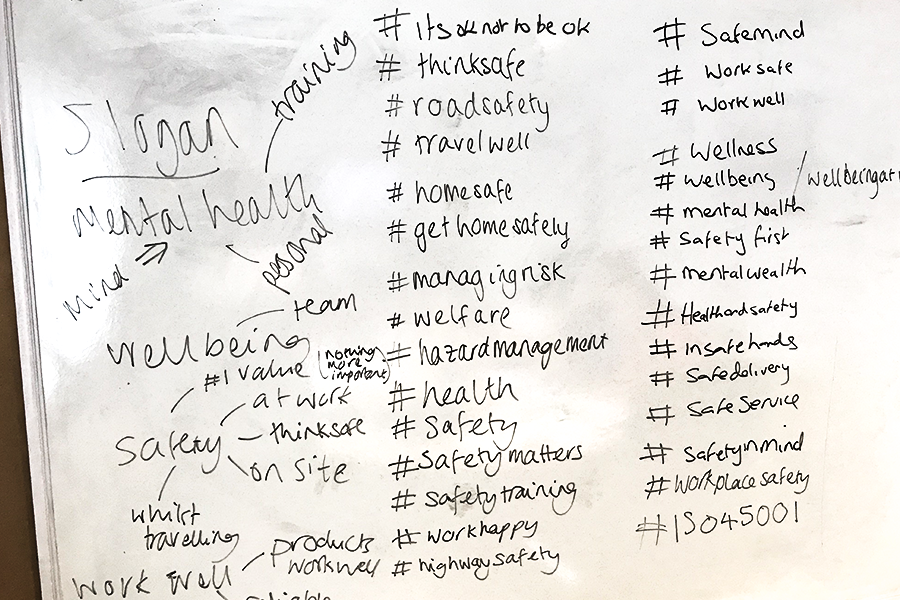 Slogan
mental health
training
personal
Mind
wellbeing
team
#1 value
(nothing
more
important)
Safety
at work
thinksafe
on site
whilst
travelling
work well
products
work well
# Its ok not to be ok
# thinksafe
# roadsafety
# travelwell
# homesafe
# gethomesafely
# managingrisk
# welfare
# hazardmanagement
# health
# Safety
# Safety matters
# safetytraining
# workhappy
# highwaysafety
# Safemind
# Worksafe
# Workwell
# Wellness
# Wellbeing / wellbeingat
# mental health
# Safety first
# mentalwealth
# Healthandsafety
# Insafehands
# Safedelivery
# Safe Service
# Safetyinmind
# Workplacesafety
# ISO45001